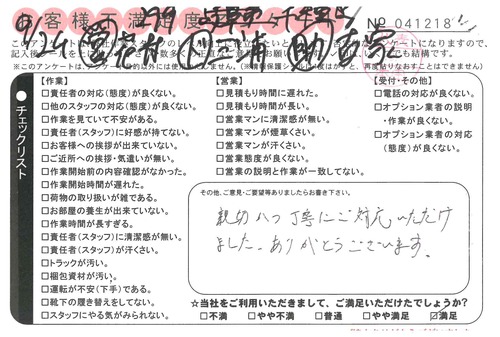 お客様不満足度
№ 041218
※このアンケートは、アンケート目的以外には使用いたしません。
チェックリスト
【作業】
□責任者の対応(態度)が良くない。
□他のスタッフの対応(態度)が良くない。
□作業を見ていて不安がある。
□責任者(スタッフ)に好感が持てない。
□お客様への挨拶が出来ていない。
□ご近所への挨拶・気遣いが無い。
□作業開始前の内容確認がなかった。
□作業開始時間が遅れた。
□荷物の取り扱いが雑である。
□お部屋の養生が出来ていない。
□作業時間が長すぎる。
□責任者(スタッフ)に清潔感が無い。
□責任者(スタッフ)が汗くさい。
□トラックが汚い。
□梱包資材が汚い。
□運転が不安(下手)である。
□靴下の履き替えをしてない。
□スタッフにやる気がみられない。
【営業】
□見積もり時間に遅れた。
□見積もり時間が長い。
□営業マンに清潔感が無い。
□営業マンが煙草くさい。
□営業マンが汗くさい。
□営業態度が良くない。
□営業の説明と作業が一致してない。
【受付・その他】
□電話の対応が良くない。
□オプション業者の説明・作業が良くない。
□オプション業者の対応(態度)が良くない。
その他、ご意見・ご要望等ありましたらお書き下さい。
親切かつ丁寧にご対応いただけ
ました。ありがとうございます。
☆当社をご利用いただきまして、ご満足いただけたでしょうか?
□不満 □やや不満 □普通 □やや満足 ☑満足